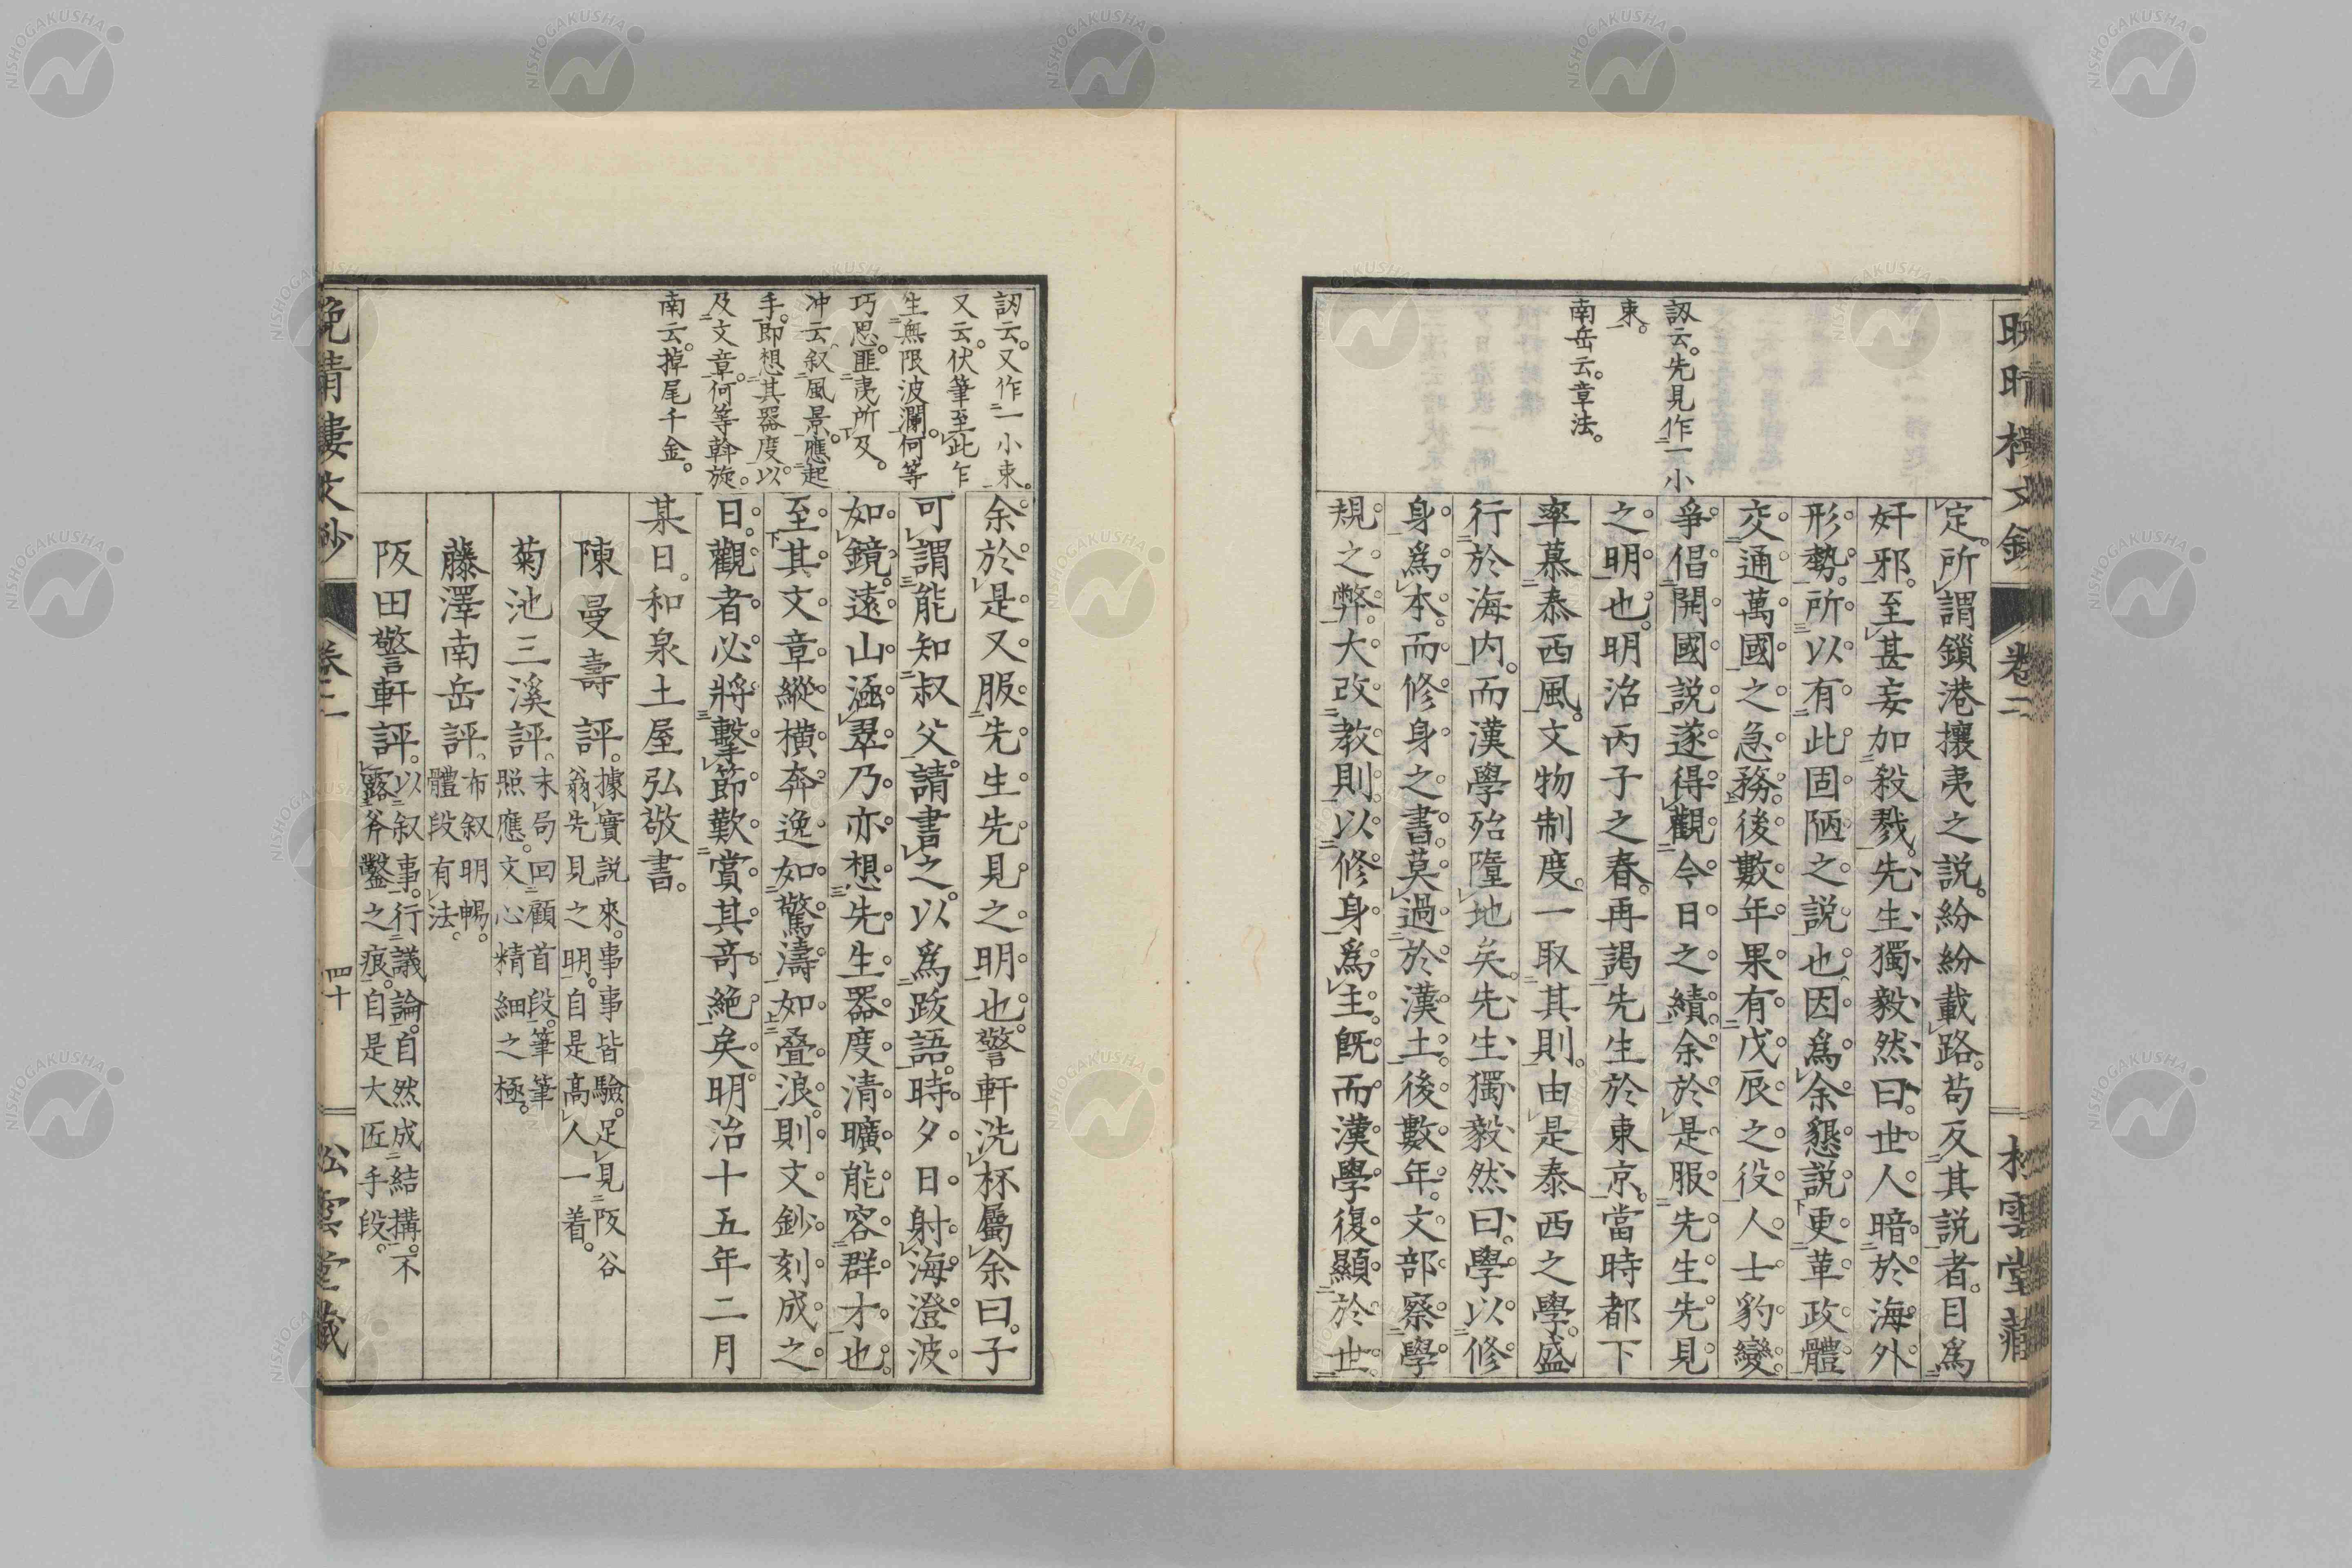 定。所謂鎖港攘夷之説。紛紛載路。苟反其説者。目爲
奸邪。至甚妄加殺戮。先生獨毅然曰。世人暗於海外
形勢。所以有此固陋之説也。因爲余懇説更革政體
交通萬國之急務。後數年果有戊辰之役。人士豹變。
爭倡開國説遂得觀今日之績。余於是服先生先見
之明也。明治丙子之春。再謁先生於東京。當時都下
率慕泰西風。文物制度。一取其則。由是泰西之學。盛
行於海内。而漢學殆墮地矣。先生獨毅然曰。學以修
身爲本。而修身之書。莫過於漢土。後數年。文部察學
規之弊。大改教則。以修身爲主。既而漢學復顯於世。
訒云。先見作一小
束。
南岳云。章法。
卷二
余於是又服先生先見之明也。警軒洗杯屬余曰。子
可謂能知叔父。請書之。以爲跋語。時夕日射海。澄波
如鏡。遠山涵翠。乃亦想先生器度清曠。能容群才也。
至其文章縱橫奔逸。如驚濤如疊浪。則文鈔刻成之
日。觀者必將擊節歎賞其奇絶矣。明治十五年二月
某日。和泉土屋弘敬書。
陳曼壽評。據實説來。事事皆驗。足見阪谷
翁先見之明。自是高人一着。
菊池三溪評。末局回顧首段。筆筆
照應。文心精細之極。
藤澤南岳評。布叙明暢。
體段有法。
阪田警軒評。以叙事。行議論。自然成結搆。不
露斧鑿之痕。自是大匠手段。
訒云。又作一小束。
又云。伏筆至此乍
生無限波瀾。何等
巧思。匪夷所及。
冲云。叙風景。應起
手。即想其器度。以
及文章。何等斡旋。
南云。掉尾千金。
晩晴樓文鈔
卷二
四十
松雲堂藏